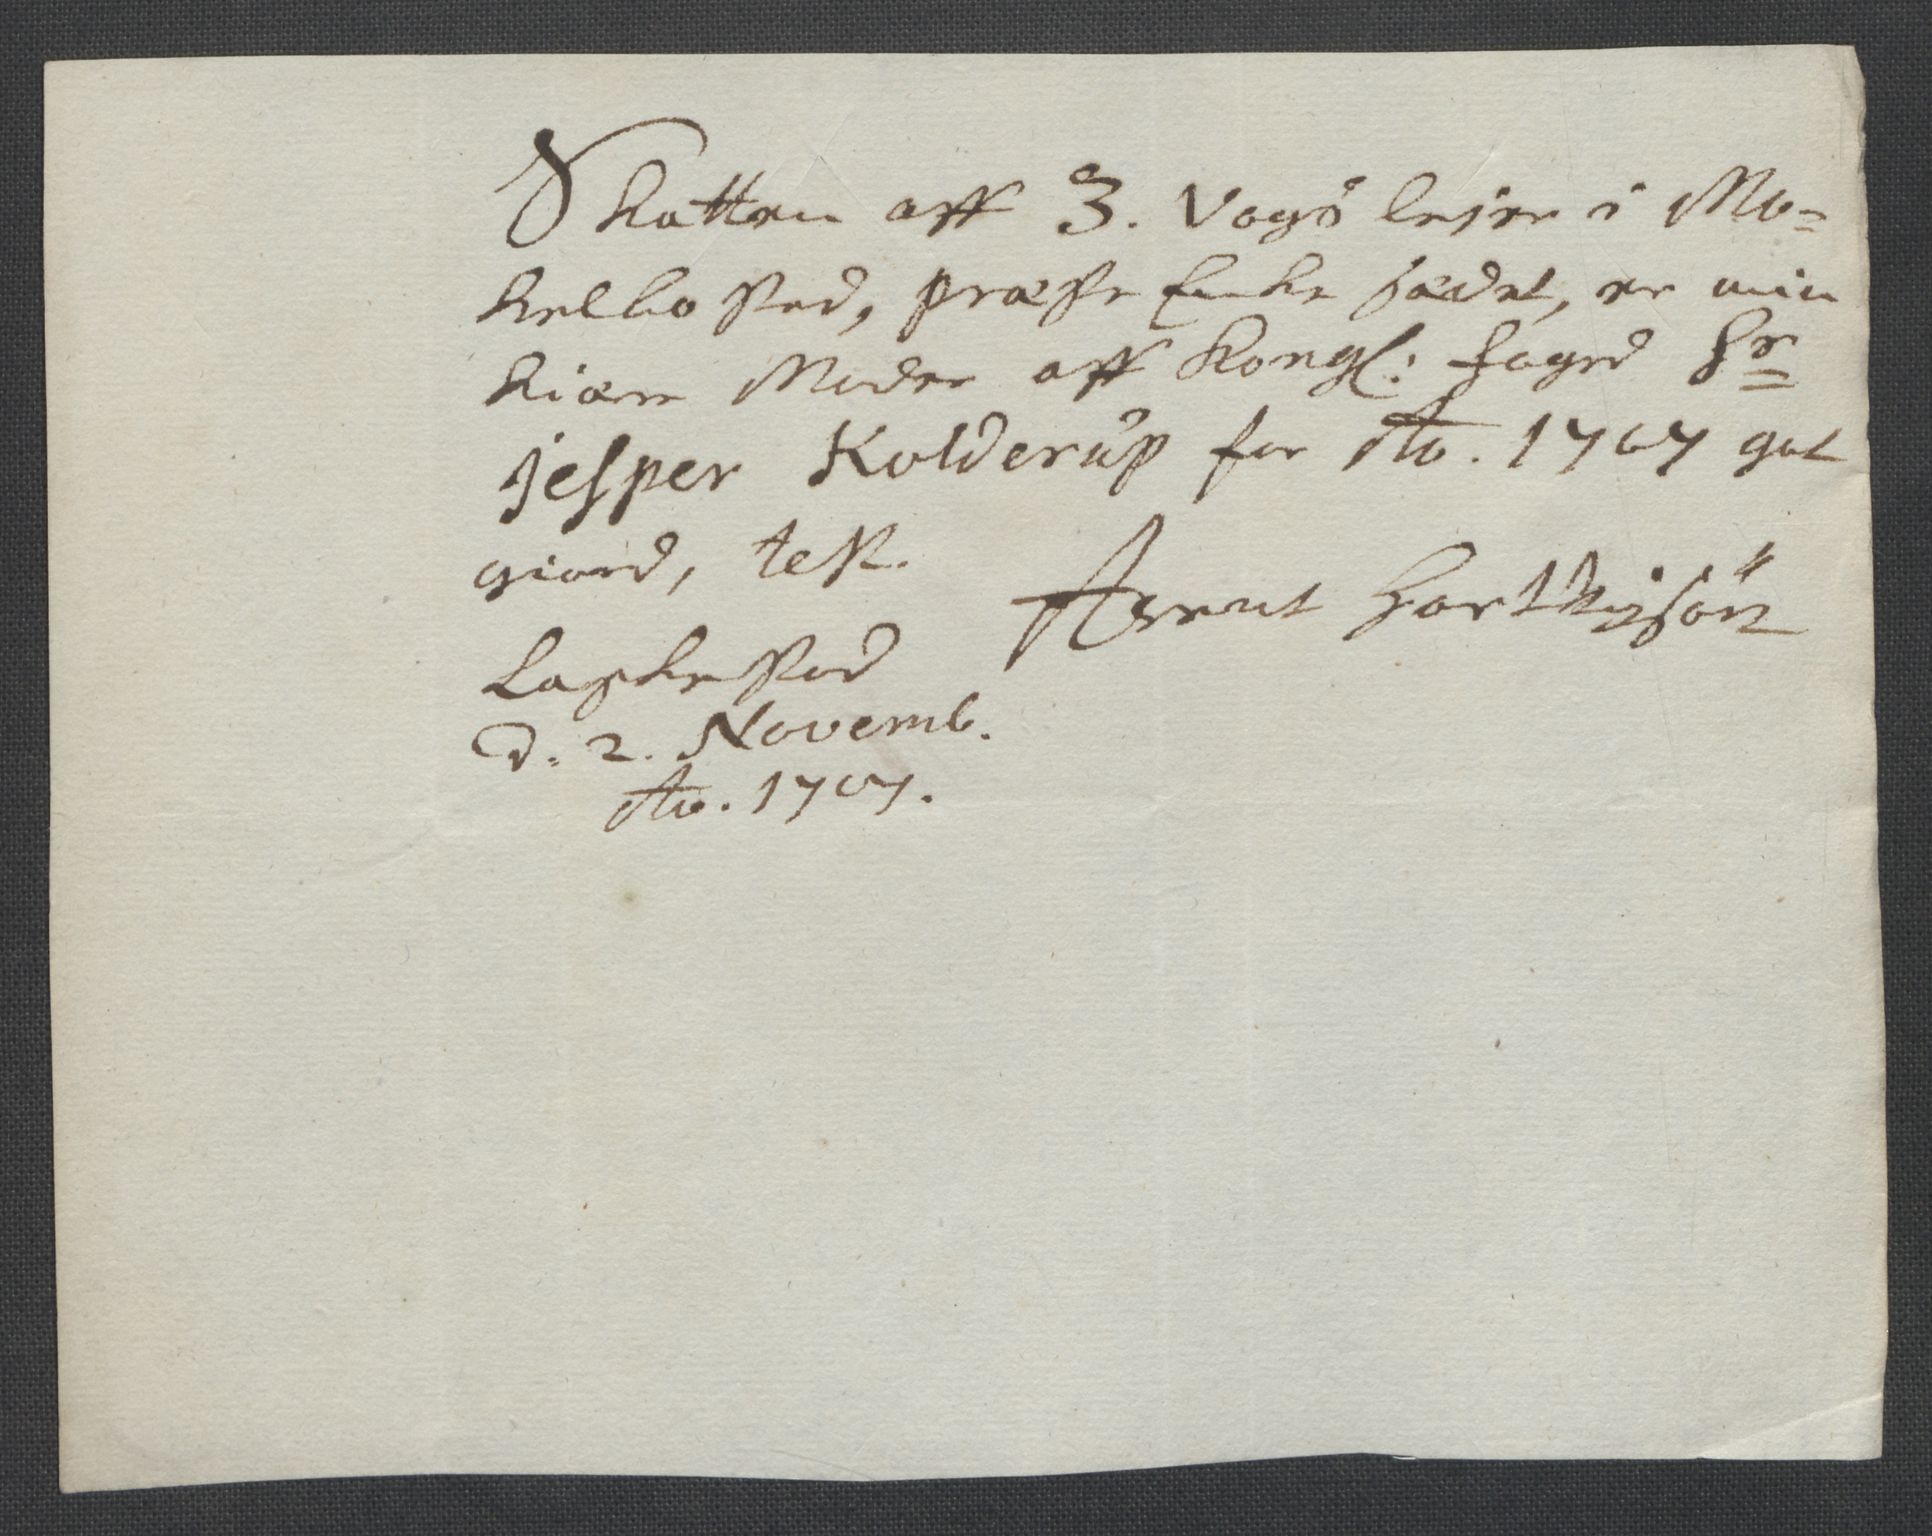 Skatten aff 3. Vogs lejer i Mo=
kelbo sted, præste Encke sædet, er min
kiære Moder aff Kongl: foged Hr
Jesper Kolderup for Ao. 1707 got
giord, test.
Arent Hartvigsøn
Laskestad
d. 2. Novemb.
Ao. 1707.